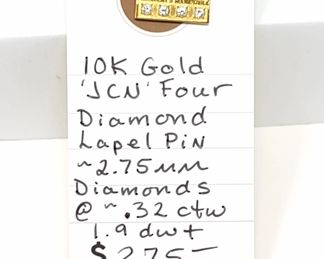 10K Gold
'JCN' Four
Diamond
Lapel Pin
~2.75mm
Diamonds
@ ~ .32 ctw
1.9 dwt
$275—